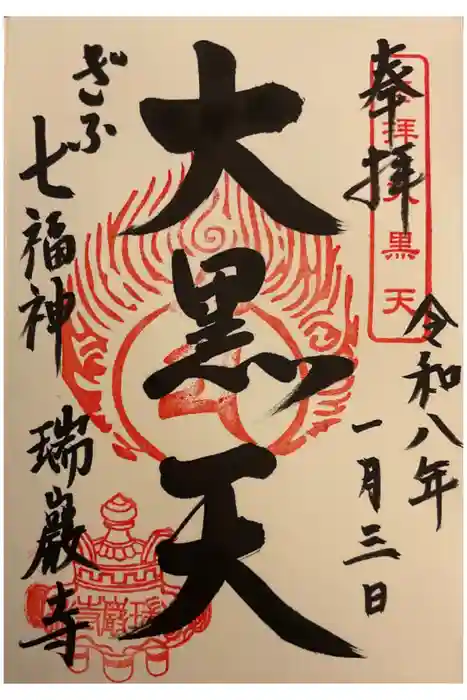 奉拝
奉拝大黒天
令和八年
一月三日
大黒天
ぎふ
七福神
瑞巖寺
瑞巖寺